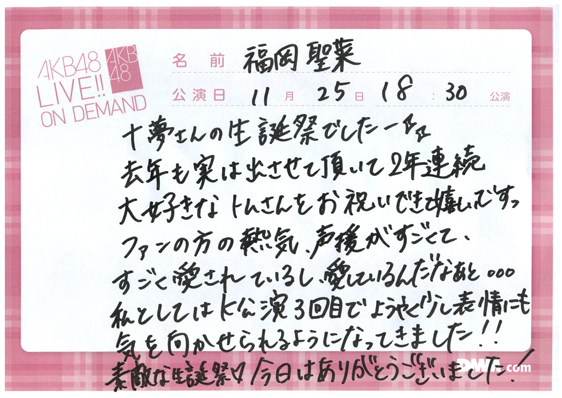 AKB48
LIVE!!
ON DEMAND
AKB
48
名前 福岡聖菜
公演日 11月25日 18:30 公演
十夢さんの生誕祭でしたー☆☆
去年も実は出させて頂いて2年連続
大好きなトムさんをお祝いできて嬉しいですっ
ファンの方の熱気、声援がすごくて、
すごく愛されているし、愛しているんだなあと...
私としてはK公演3回目でようやく少し表情にも
気を向かせられるようになってきました!!
素敵な生誕祭♡今日はありがとうございました!
DMM.com